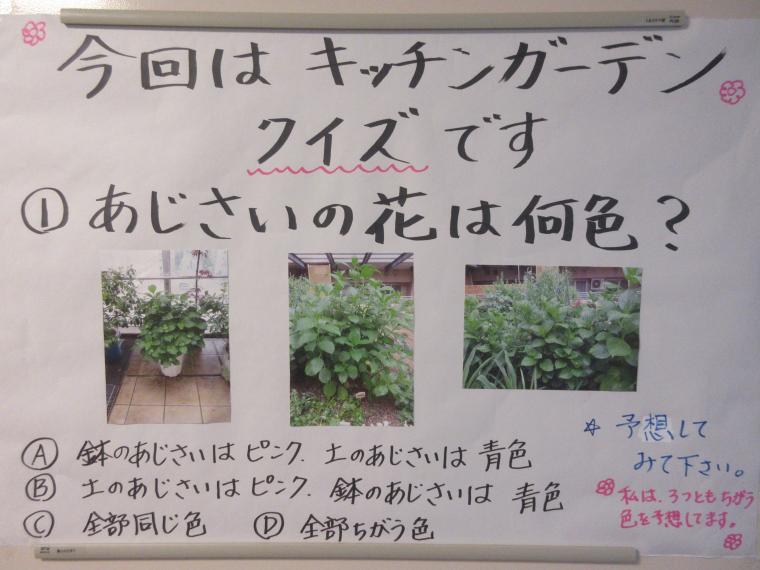 今回は キッチンガーデン
クイズです
① あじさいの花は何色?
Ⓐ 鉢のあじさいは ピンク. 土のあじさいは 青色
Ⓑ 土のあじさいは ピンク. 鉢のあじさいは 青色
Ⓒ 全部同じ色 Ⓓ 全部ちがう色
☆ 予想して
みて下さい。
私は、3つともちがう
色を予想してます。